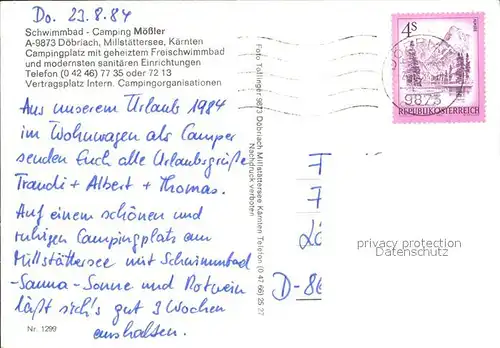 Do. 23.8.84
Schwimmbad - Camping Mößler
A-9873 Döbriach, Millstättersee, Kärnten
Campingplatz mit geheiztem Freischwimmbad
und modernsten sanitären Einrichtungen
Telefon (0 42 46) 77 35 oder 72 13
Vertragsplatz Intern. Campingorganisationen
Aus unserem Urlaub 1984
im Wohnwagen als Camper
senden Euch alle Urlaubsgrüße
Traudi + Albert + Thomas.
Auf einem schönen und
ruhigen Campingplatz am
Millstättersee mit Schwimmbad
-Sauna-Sonne und Rotwein
läßt sich's gut 3 Wochen
aushalten.
Nr. 1299
Foto Tollinger 9873 Döbriach Millstättersee Kärnten Telefon (0 47 66) 25 27
Nachdruck verboten
4S
REPUBLIK ÖSTERREICH
9873
D-86
privacy protection
Datenschutz